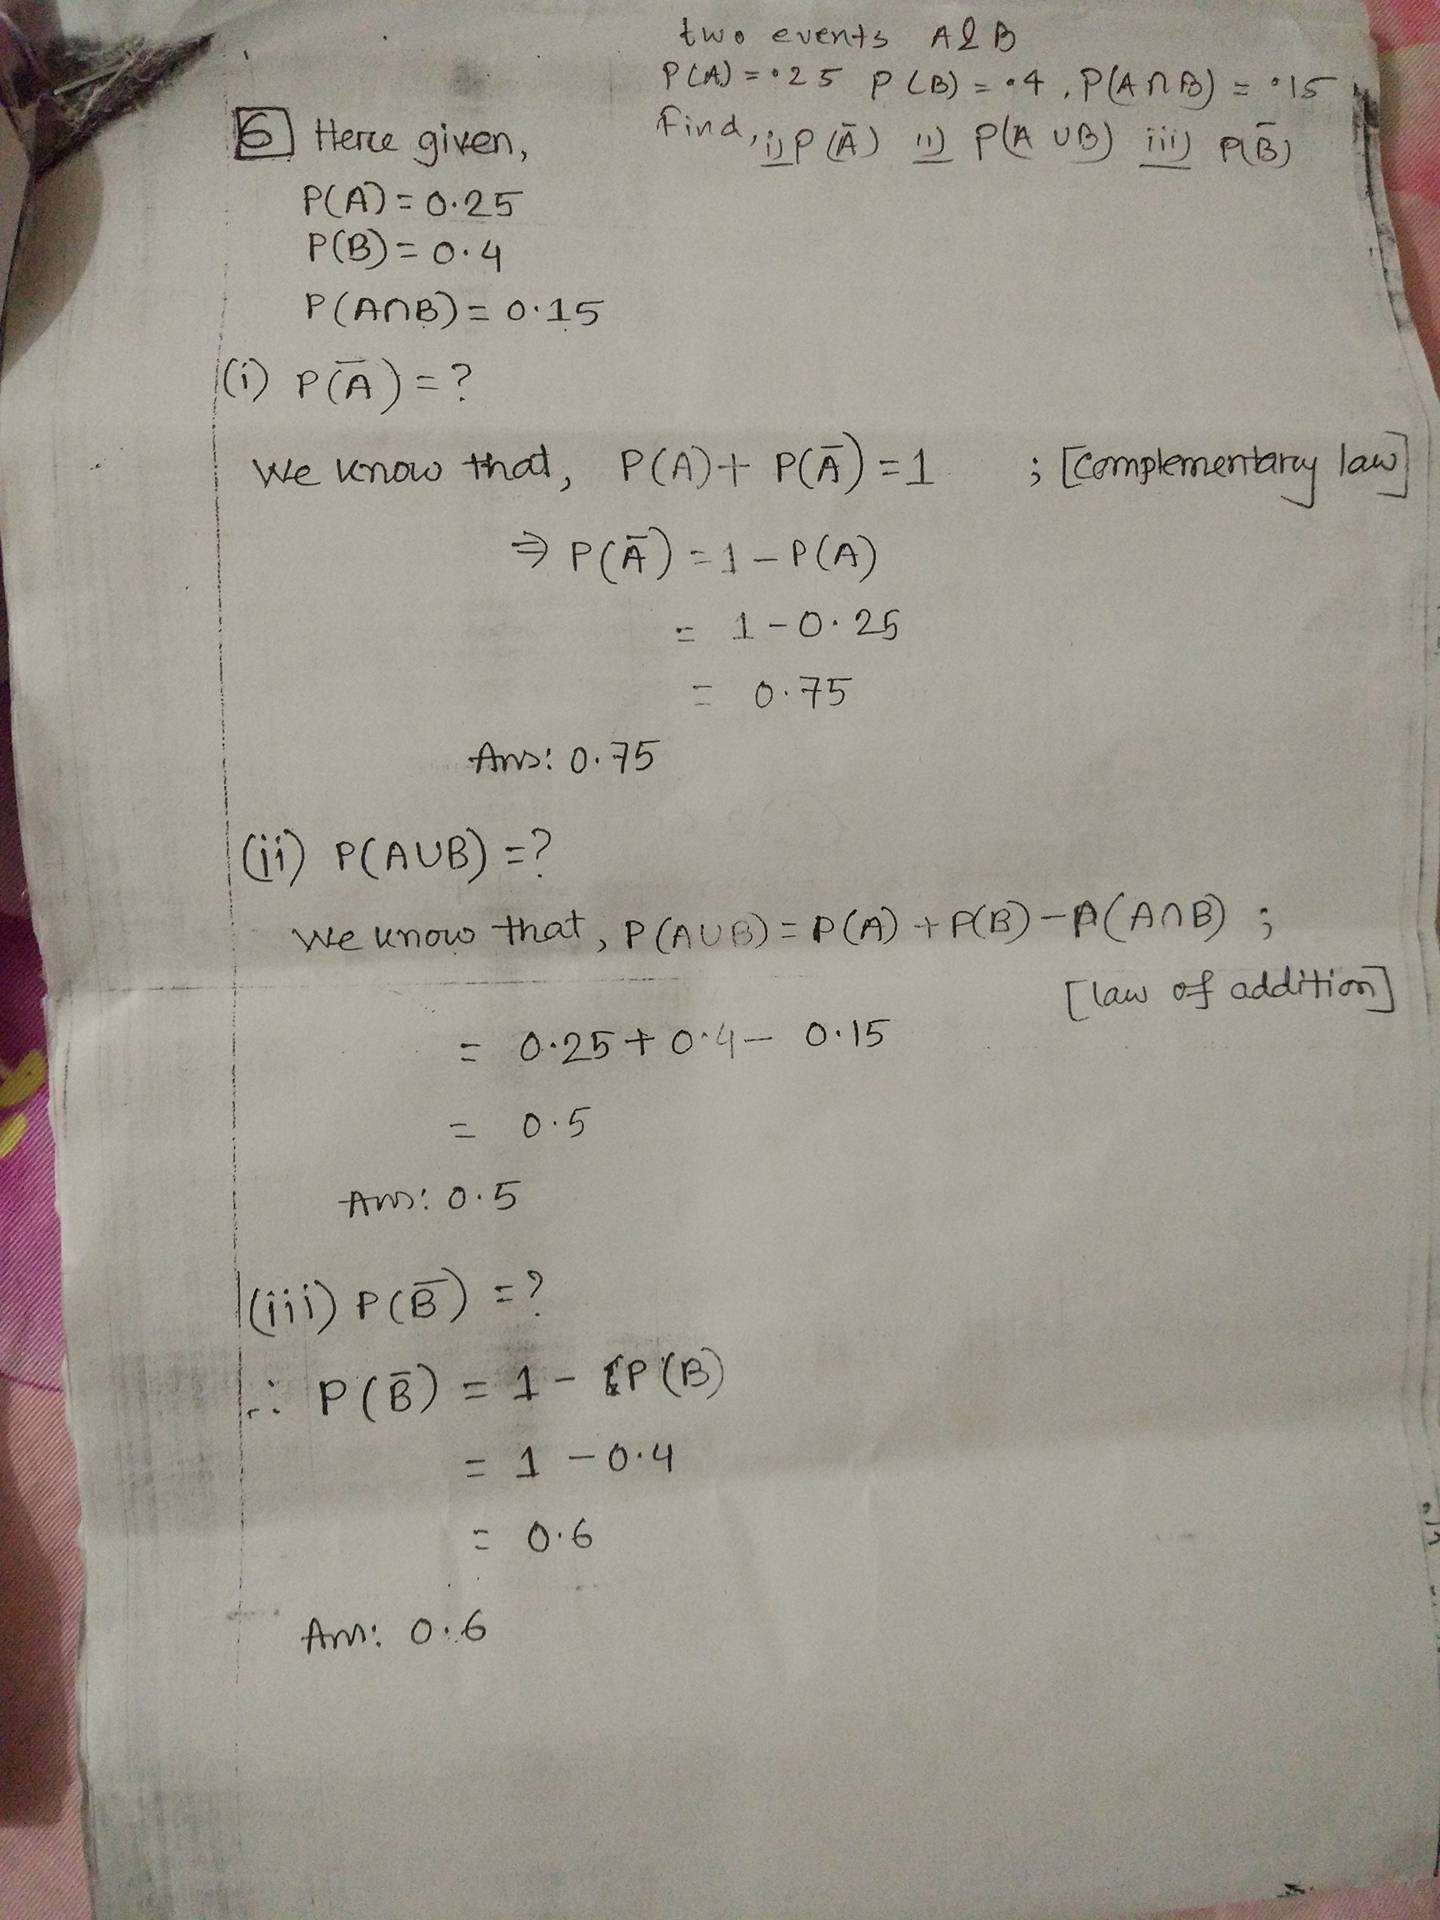 two events A & B
P(A) = .25 P(B) = .4, P(A∩B) = .15
Find, i) P(Ā) ii) P(A∪B) iii) P(B̄)
6 Here given,
P(A) = 0.25
P(B) = 0.4
P(A∩B) = 0.15
(i) P(Ā) = ?
We know that, P(A) + P(Ā) = 1 ; [Complementary law]
⇒ P(Ā) = 1 - P(A)
= 1 - 0.25
= 0.75
Ans: 0.75
(ii) P(A∪B) = ?
We know that, P(A∪B) = P(A) + P(B) - P(A∩B) ;
[law of addition]
= 0.25 + 0.4 - 0.15
= 0.5
Ans: 0.5
(iii) P(B̄) = ?
∴ P(B̄) = 1 - P(B)
= 1 - 0.4
= 0.6
Ans: 0.6